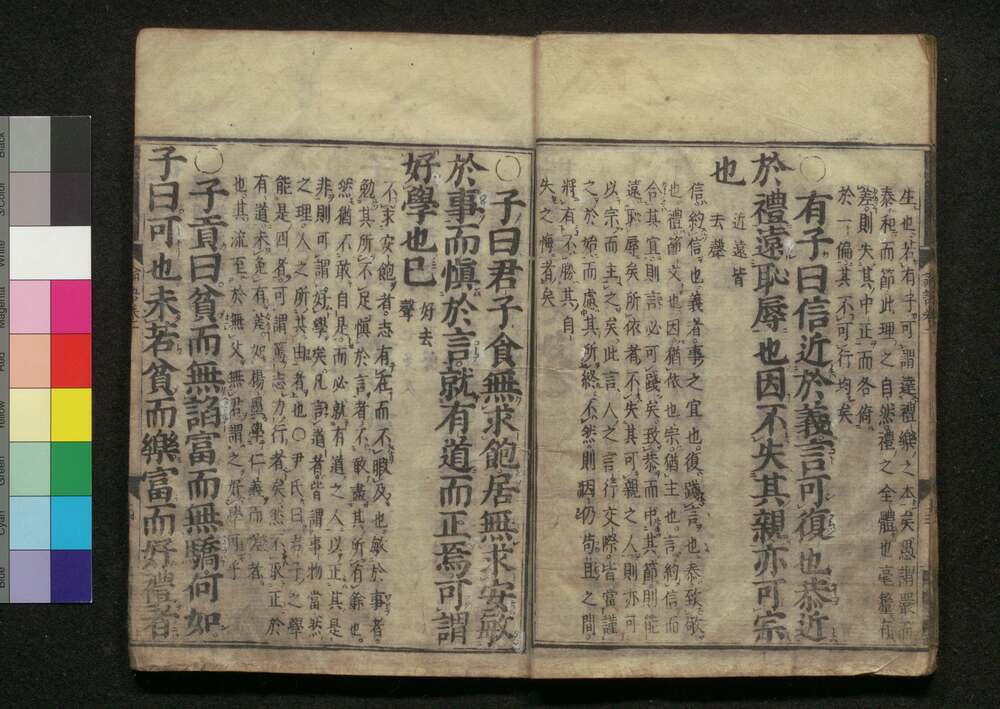 生也若有子可謂達禮樂之本矣愚謂嚴而
泰和而節此理之自然禮之全體也毫釐有
差則失其中正而各倚
於一偏其不可行均矣
○有子曰信近於義言可復也恭近
於禮遠恥辱也因不失其親亦可宗
也
近遠皆
去聲
信約信也義者事之宜也復踐言也恭致敬
也禮節文也因猶依也宗猶主也言約信而
合其宜則言必可踐矣致恭而中其節則能
遠恥辱矣所依者不失其可親之人則亦可
以宗而主之矣此言人之言行交際皆當謹
之於始而慮其所終不然則因仍苟且之間
將有不勝其自
失之悔者矣
○子曰君子食無求飽居無求安敏
於事而慎於言就有道而正焉可謂
好學也已
好去
聲
不求安飽者志有在而不暇及也敏於事者
勉其所不足慎於言者不敢盡其所有餘也
然猶不敢自是而必就有道之人以正其是
非則可謂好學矣凡言道者皆謂事物當然
之理人之所共由者也○尹氏曰君子之學
能是四者可謂篤志力行者矣然不取正於
有道未免有差如楊墨學仁義而差者
也其流至於無父無君謂之好學可乎
○子貢曰貧而無諂富而無驕何如
子曰可也未若貧而樂富而好禮者
Black
3/Color
White
Magenta
Red
Yellow
Green
Cyan
Blue